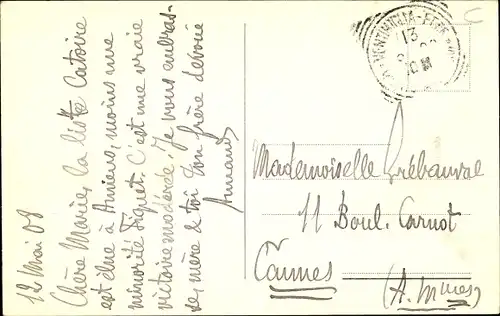 12 Mai 08
Chère Marie, la liste Catoire
est élue à Amiens, moins une
minorité Fiquet. C'est une vraie
victoire modérée. Je vous embras-
se, mère & toi Ton frère dévoué
Armand
Mademoiselle Trébauval
11 Boul. Carnot
Cannes
(A. Mmes)
13